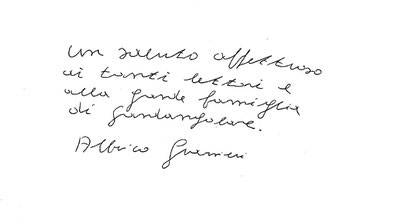 un saluto affettuoso
ai tanti lettori e
alla grande famiglia
di grandangolare.
Albrico